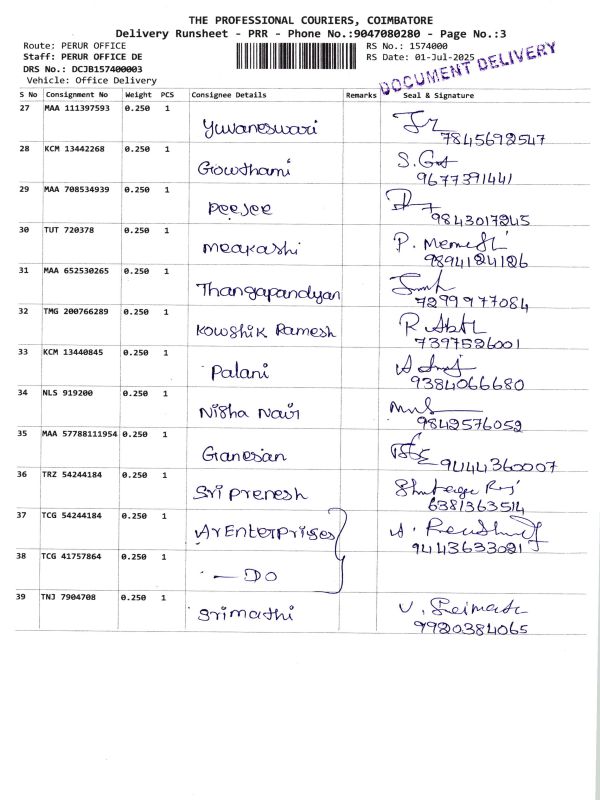 THE PROFESSIONAL COURIERS, COIMBATORE
Delivery Runsheet - PRR - Phone No.:9047080280 - Page No.:3
Route: PERUR OFFICE
RS No.: 1574000
Staff: PERUR OFFICE DE
RS Date: 01-Jul-2025
DRS No.: DCJB157400003
Vehicle: Office Delivery
DOCUMENT DELIVERY
S No Consignment No Weight PCS Consignee Details Remarks Seal & Signature
27 MAA 111397593 0.250 1
Yuvaneswari
7845692547
28 KCM 13442268 0.250 1
Gowthami
9677391441
29 MAA 708534939 0.250 1
Peejee
9843017245
30 TUT 720378 0.250 1
Meakashi P.
9894124126
31 MAA 652530265 0.250 1
Thangapandyan
7299977084
32 TMG 200766289 0.250 1
Kowshik Ramesh
7397526001
33 KCM 13440845 0.250 1
Palani
9384066680
34 NLS 919200 0.250 1
Nisha Nair
9842576052
35 MAA 57788111954 0.250 1
Ganesan
9444360007
36 TRZ 54244184 0.250 1
Sri Prenesh
6381363514
37 TCG 54244184 0.250 1
Ar Enterprises
9443633021
38 TCG 41757864 0.250 1
— Do
39 TNJ 7904708 0.250 1
Srimathi
9920384065